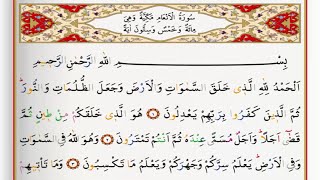 سُورَةُ الْاَنْعَامِ مَكِّيَّةٌ وَهِىَ
مِائَةٌ وَخَمْسٌ وَسِتُّونَ اٰيَةً
بِسْمِ اللّٰهِ الرَّحْمٰنِ الرَّحِيمِ
اَلْحَمْدُ لِلّٰهِ الَّذ۪ى خَلَقَ السَّمٰوَاتِ وَالْاَرْضَ وَجَعَلَ الظُّلُمَاتِ وَالنُّورَ
ثُمَّ الَّذ۪ينَ كَفَرُوا بِرَبِّهِمْ يَعْدِلُونَ ١ هُوَ الَّذ۪ى خَلَقَكُمْ مِنْ ط۪ينٍ ثُمَّ
قَضٰٓى اَجَلًا وَاَجَلٌ مُسَمًّى عِنْدَهُ ثُمَّ اَنْتُمْ تَمْتَرُونَ ٢ وَهُوَ اللّٰهُ فِى السَّمٰوَاتِ
وَفِى الْاَرْضِ يَعْلَمُ سِرَّكُمْ وَجَهْرَكُمْ وَيَعْلَمُ مَا تَكْسِبُونَ ٣ وَمَا تَأْت۪يهِمْ